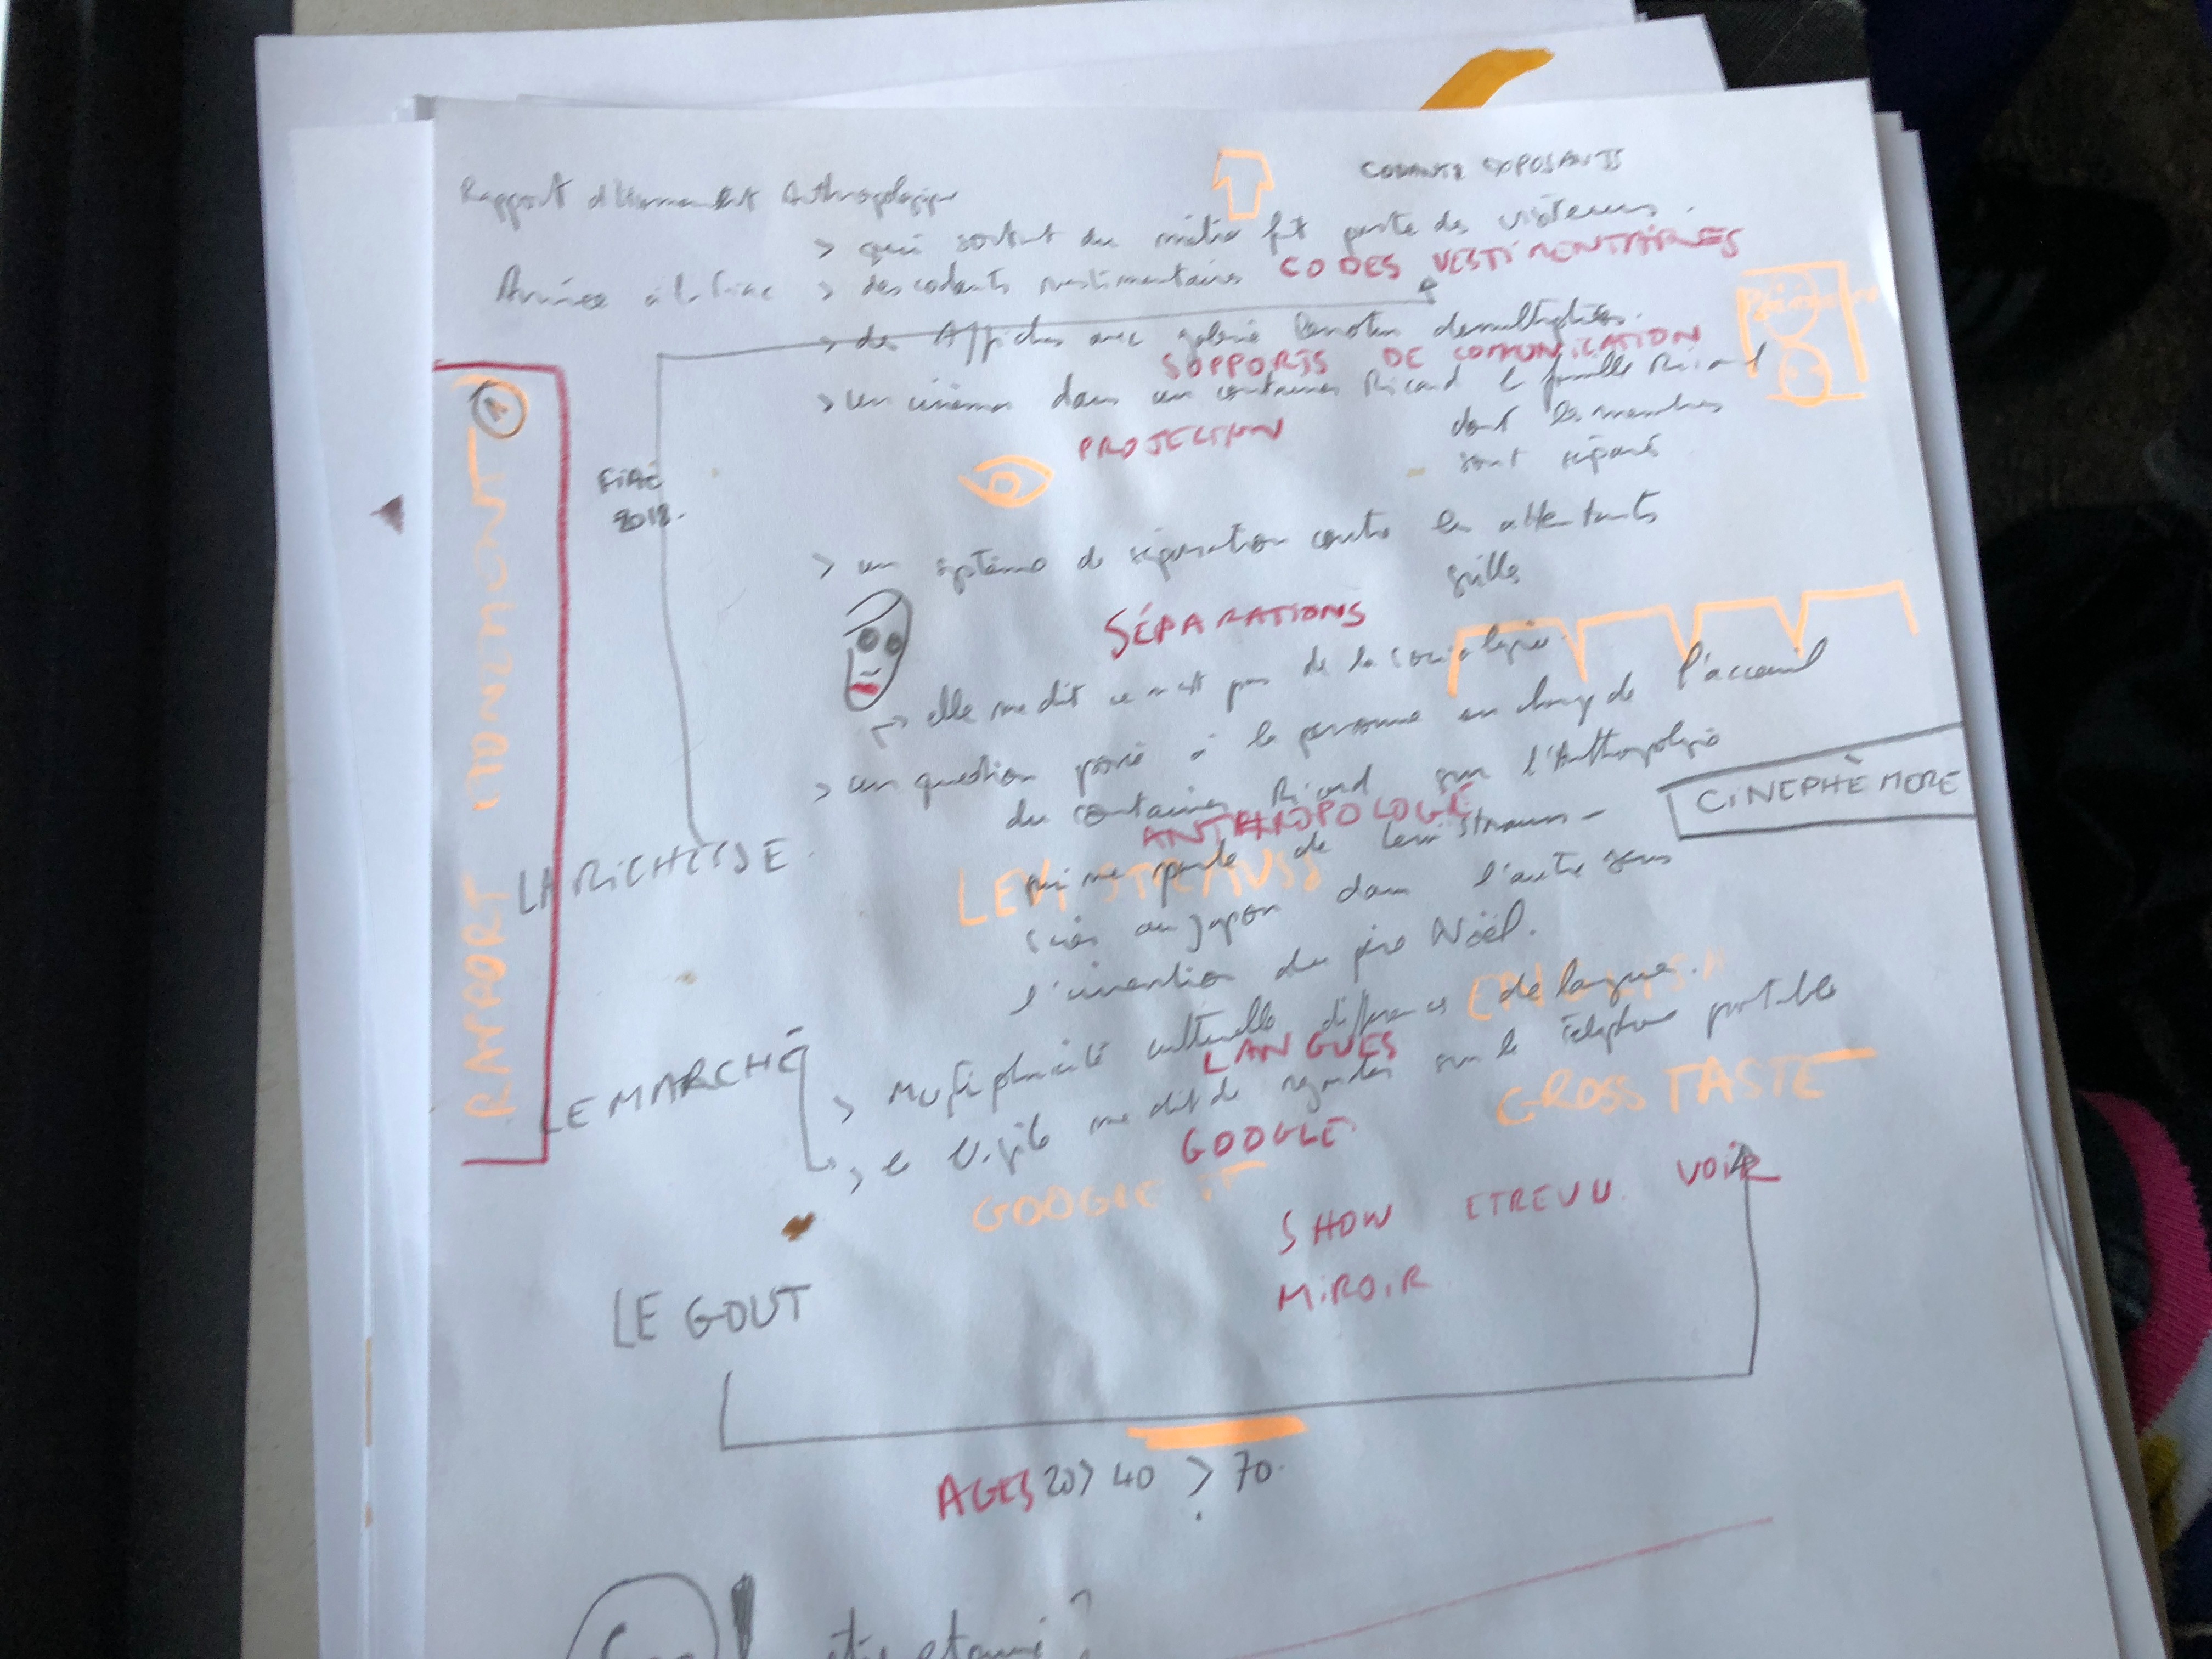 CODANTS EXPOSANTS
Rapport d'étonnement Anthropologique
> qui sortant du métro fait partie des visiteurs.
Arrivée à la fiac > des codants vestimentaires CODES VESTIMENTAIRES
> des Affiches avec galerie démultipliées.
SUPPORTS DE COMUNICATION
> un cinéma dans un container Ricard la famille Ricard
dont les membres
sont séparés
PROJECTION
①
RAPPORT
FIAC
2018.
> un système de séparation contre les attentats
grille
SÉPARATIONS
elle me dit ce n'est pas de la sociologie.
> un question posée à la personne en charge de l'acceuil
du container Ricard sur l'Anthropologie
ANTHROPOLOGIE
CINEPHÈMORE
LA RICHESSE.
qui me parle de Levi Strauss -
LEVI STRAUSS
au Japon dans l'autre sens
l'invention du père Noël.
LE MARCHÉ
> culturelle différences de langues.
LANGUES
ENGLISH
> le Vigile me dit de regarder sur le téléphone portable
GROSS TASTE
GOOGLE
GOOGLE IT
SHOW ETRE VU. VOIR
MIROIR
LE GOUT
AGES 20 > 40 > 70.
!
?